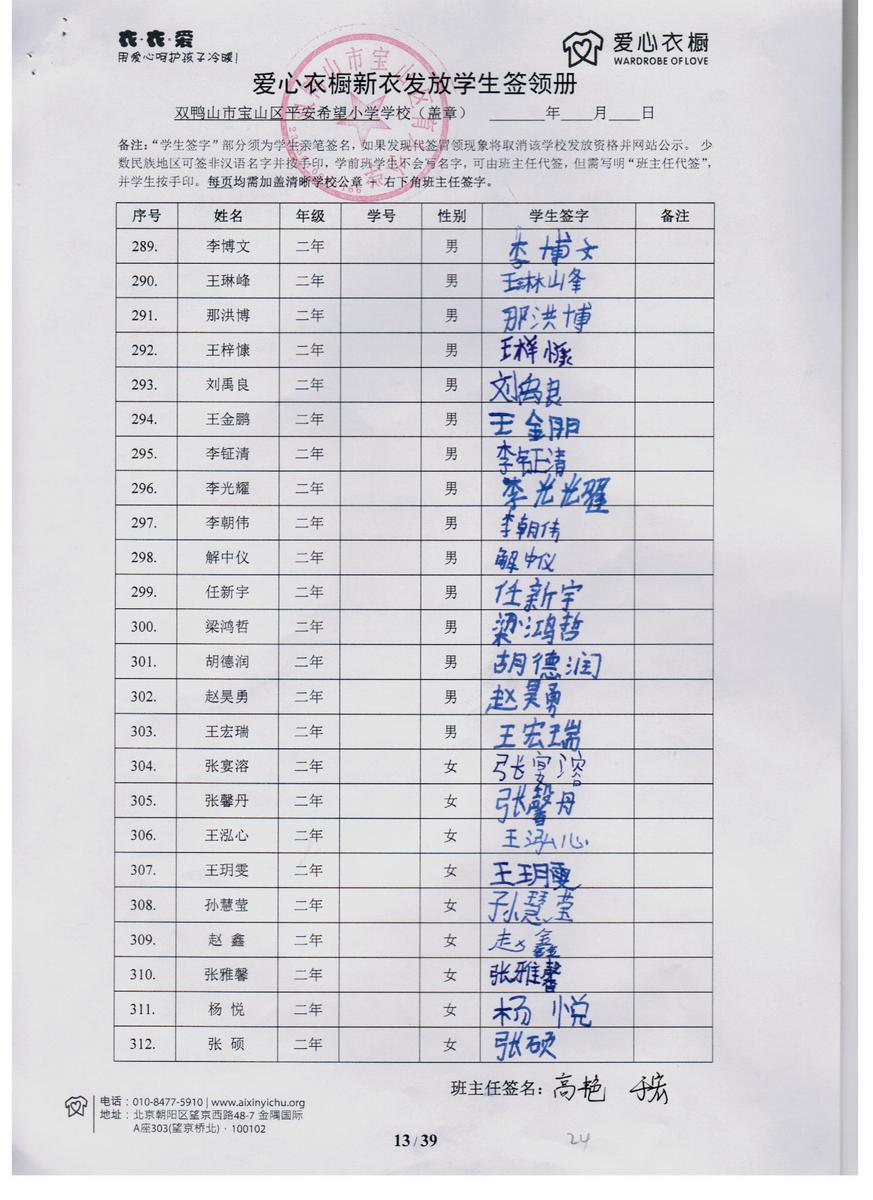 衣·衣·爱
用爱心呵护孩子冷暖!
爱心衣橱
WARDROBE OF LOVE
爱心衣橱新衣发放学生签领册
双鸭山市宝山区平安希望小学学校（盖章） ______年____月____日
备注：“学生签字”部分须为学生亲笔签名，如果发现代签冒领现象将取消该学校发放资格并网站公示。 少
数民族地区可签非汉语名字并按手印，学前班学生不会写名字，可由班主任代签，但需写明“班主任代签”，
并学生按手印。每页均需加盖清晰学校公章 右下角班主任签字。
序号 姓名 年级 学号 性别 学生签字 备注
289. 李博文 二年 男 李博文
290. 王琳峰 二年 男 王琳峰
291. 那洪博 二年 男 那洪博
292. 王梓慷 二年 男 王梓慷
293. 刘禹良 二年 男 刘禹良
294. 王金鹏 二年 男 王金朋
295. 李钲清 二年 男 李钲清
296. 李光耀 二年 男 李光光翟
297. 李朝伟 二年 男 李朝伟
298. 解中仪 二年 男 解中仪
299. 任新宇 二年 男 任新宇
300. 梁鸿哲 二年 男 梁鸿哲
301. 胡德润 二年 男 胡德润
302. 赵昊勇 二年 男 赵昊勇
303. 王宏瑞 二年 男 王宏瑞
304. 张宴溶 二年 女 张宴溶
305. 张馨丹 二年 女 张馨丹
306. 王泓心 二年 女 王泓心
307. 王玥雯 二年 女 王玥雯
308. 孙慧莹 二年 女 孙慧莹
309. 赵 鑫 二年 女 赵鑫
310. 张雅馨 二年 女 张雅馨
311. 杨 悦 二年 女 杨悦
312. 张 硕 二年 女 张硕
班主任签名：高艳 于宏
电话：010-8477-5910 | www.aixinyichu.org
地址：北京朝阳区望京西路48-7 金隅国际
A座303(望京桥北)·100102
13 / 39
24